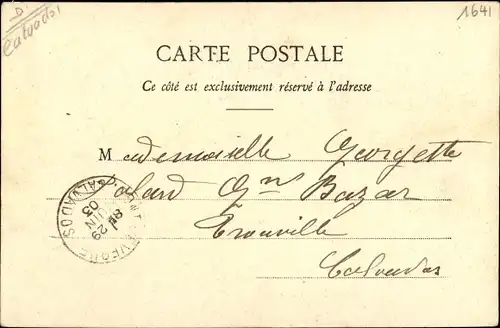 D.
Calvados
1641
CARTE POSTALE
Ce côté est exclusivement réservé à l'adresse
Mademoiselle Georgette
Galard Gᵈ Bazar
Trouville
Calvados
PONT-L'EVEQUE
CALVADOS
8E
29
JUIN
03